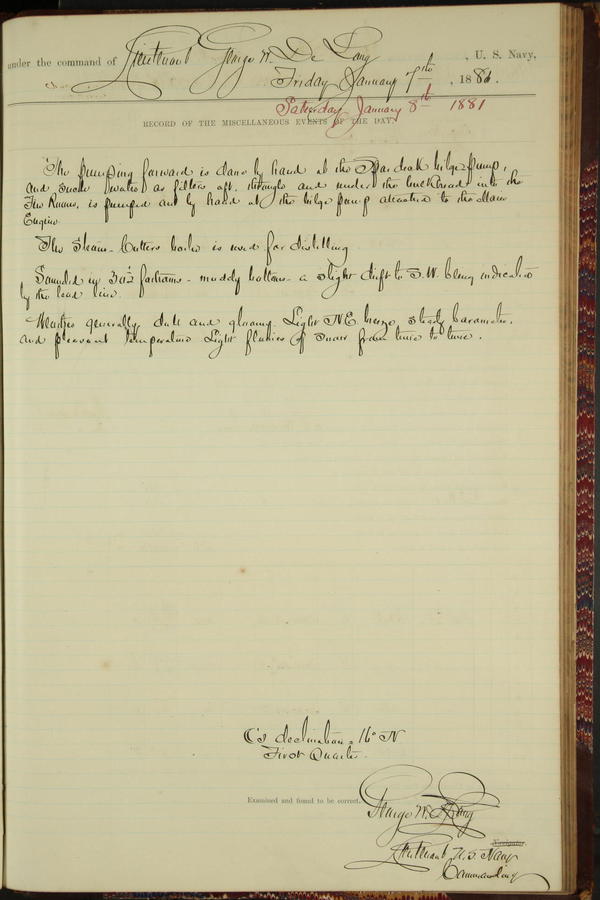 under the command of Lieutenant George W. De Long, U. S. Navy,
Friday January 7th, 1881.
Saturday January 8th 1881
RECORD OF THE MISCELLANEOUS EVENTS OF THE DAY.
The pumping forward is done by hand at the Spar deck bilge pump,
and such water as filters aft, through and under the bulkhead into the
Fire Room, is pumped out by hand at the bilge pump attached to the Main
Engine
The Steam-Cutters boiler is used for distilling
Sounded in 30½ fathoms - muddy bottom - a slight drift to S.W. being indicated
by the lead line.
Weather generally dull and gloomy. Light N.E. breeze, steady barometer,
and pleasant temperature. Light flurries of snow from time to time.
☾'s declination = 16° N
First Quarter.
Examined and found to be correct.
George W. De Long
Navigator.
Lieutenant U.S. Navy
Commanding